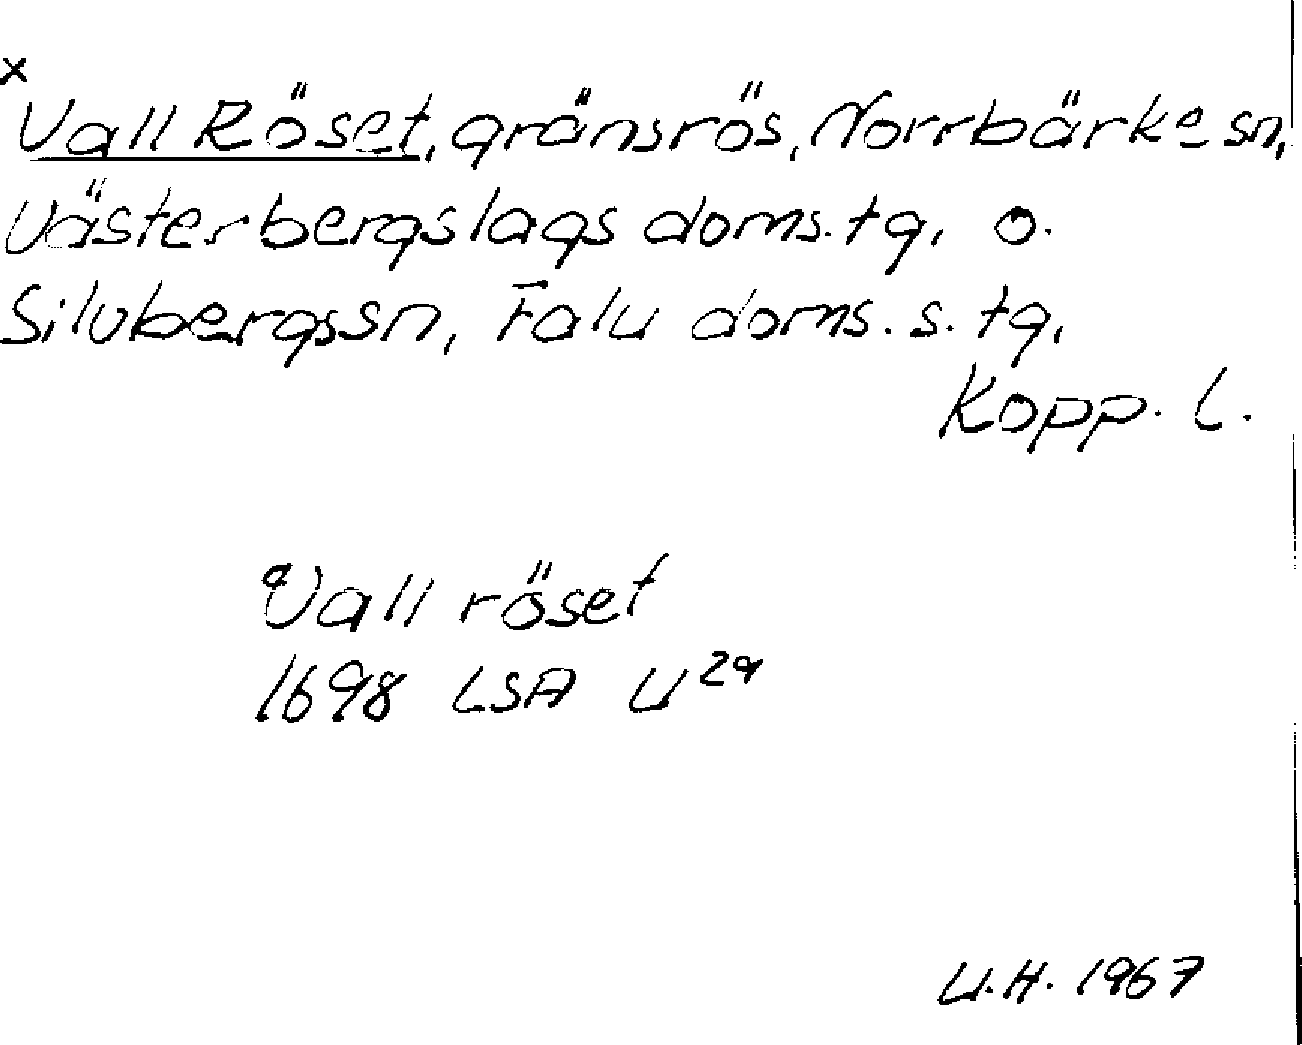 x
Vall Röset, gränsrös, Norrbärke sn,
Västerbergslags doms. tg, o.
Silvbergssn, Falu doms. s. tg,
Kopp. l.
Vall röset
1698 LSA U 29
U.H. 1967